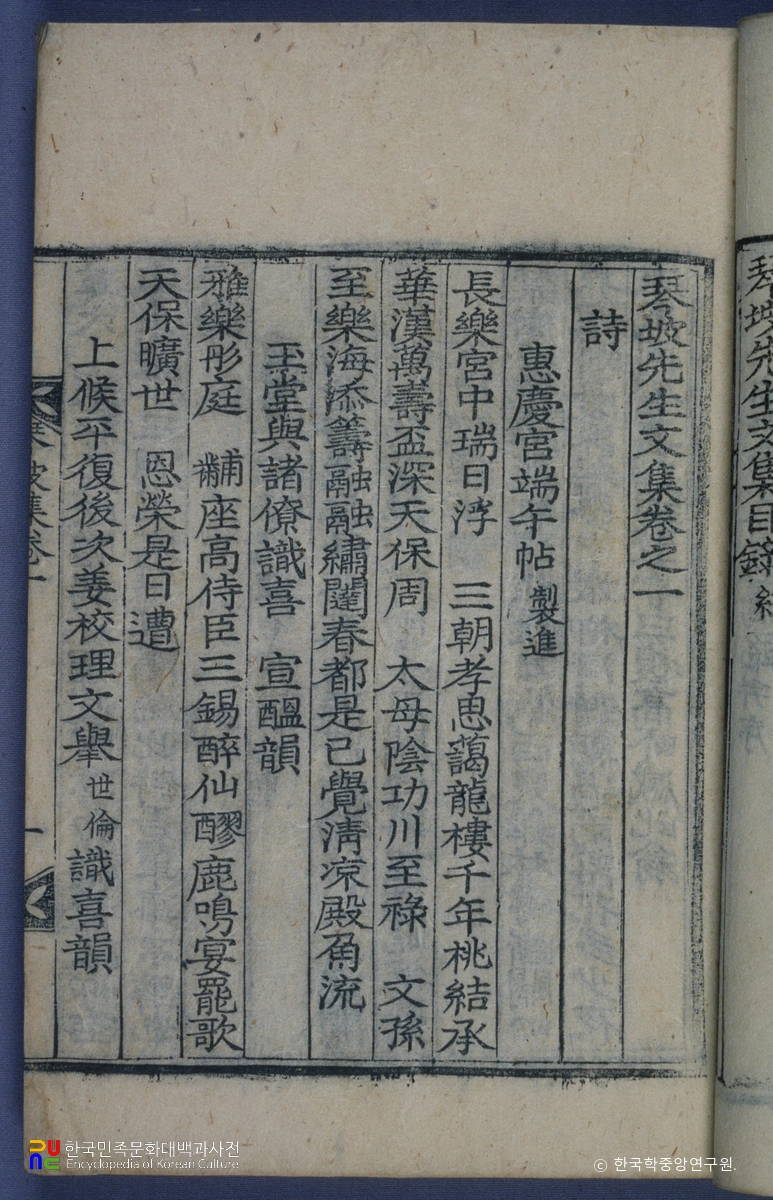 琴坡先生文集目錄終
琴坡先生文集卷之一
詩
惠慶宮端午帖 製進
長樂宮中瑞日浮 三朝孝思藹龍樓千年桃結承
華漢萬壽盃深天保周 太母陰功川至祿 文孫
至樂海添籌融融繡闥春都是已覺淸凉殿角流
玉堂與諸僚識喜 宣醞韻
雅樂彤庭 黼座高侍臣三錫醉仙醪鹿鳴宴罷歌
天保曠世 恩榮是日遭
上候平復後次姜校理文擧世倫識喜韻
琴坡集卷一 一
한국민족문화대백과사전
Encyclopedia of Korean Culture
© 한국학중앙연구원.